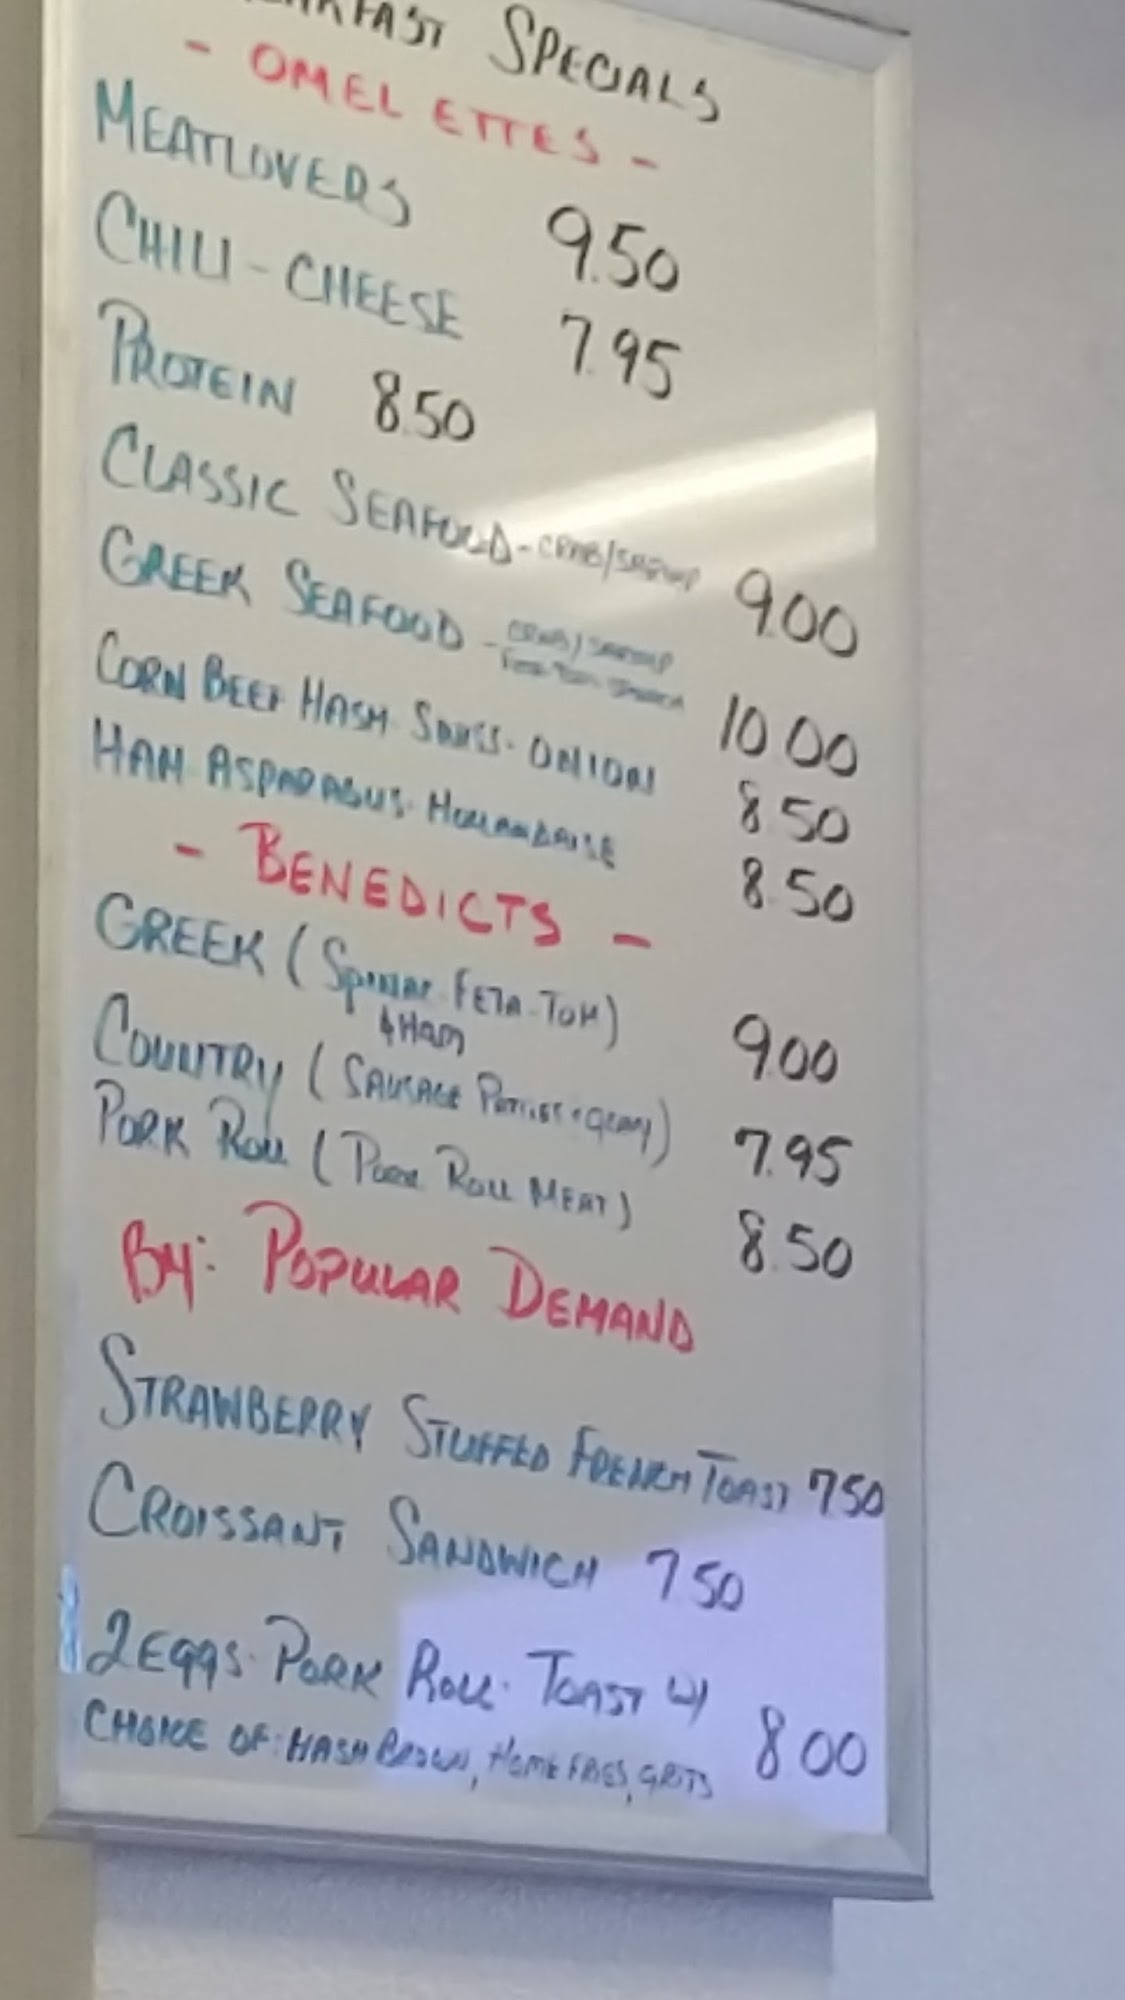 SPECIALS
- OMELETTES -
MEATLOVERS 9.50
CHILI-CHEESE 7.95
PROTEIN 8.50
CLASSIC SEAFOOD - CRAB/SHRIMP 9.00
GREEK SEAFOOD - CRAB/SHRIMP 10.00
CORN BEEF HASH. SWISS. ONION 8.50
HAM. ASPARAGUS. HOLLANDAISE 8.50
- BENEDICTS -
GREEK (SPINAC. FETA-TOM) 9.00
& HAM
COUNTRY (SAUSAGE PATTIES & GRAVY) 7.95
PORK ROLL (PORK ROLL MEAT) 8.50
BY: POPULAR DEMAND
STRAWBERRY STUFFED FRENCH TOAST 7.50
CROISSANT SANDWICH 7.50
2 EGGS. PORK ROLL. TOAST W/
CHOICE OF: HASH BROWN, HOME FRIES, GRITS 8.00